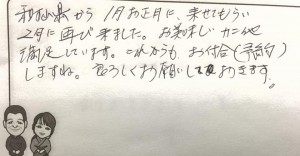 和歌山県から 1月お正月に、乗せてもらい
2月に再び来ました。お美味しいカニで
満足しています。これからも、お付合(予約)
しますね。よろしくお願いしておきます。